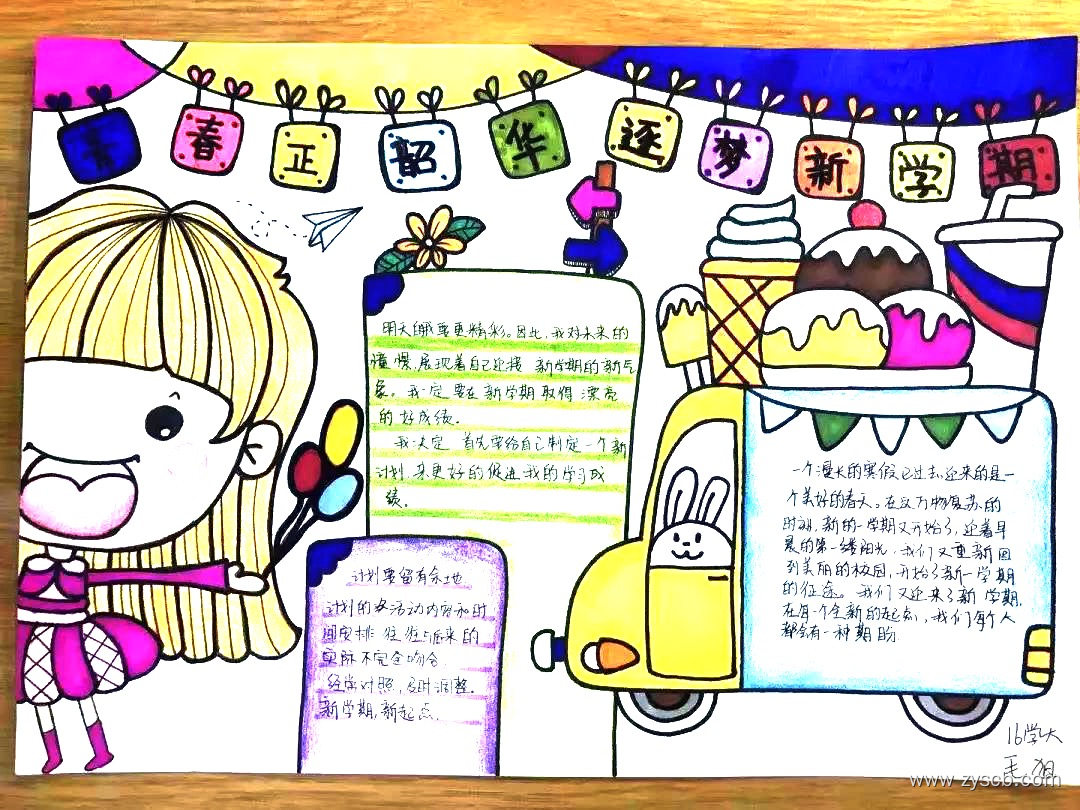 青春正韶华逐梦新学期
明天的我要更精彩。因此,我对未来的
憧憬,展现着自己迎接 新学期的新气
象。我一定要在新学期取得 漂亮
的好成绩。
我决定 首先要给自己制定一个新
计划,来更好的促进我的学习成
绩。
计划要留有余地
计划的各活动内容和时
间安排 往往与后来的
实际不完全吻合
经常对照,及时调整.
新学期,新起点.
一个漫长的寒假已过去,迎来的是一
个美好的春天。在这万物复苏的
时刻,新的一学期又开始了,迎着早
晨的第一缕阳光,我们又重新回
到美丽的校园,开始了新一学期
的征途。我们又迎来了新 学期.
在每一个全新的起点,我们每个人
都会有一种期盼.
16学大
www.zyscb.com